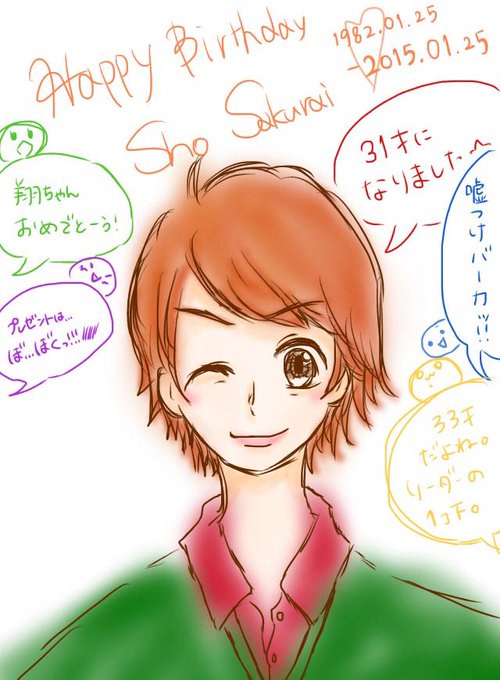 Happy Birthday
1982.01.25
-2015.01.25
Sho Sakurai
31才に
なりました〜
翔ちゃん
おめでとーう!
嘘つけバーカッ!!
プレゼントは…
ぼ…ぼくっ…!!!!!!
33才
だよね。
リーダーの
1コ下。